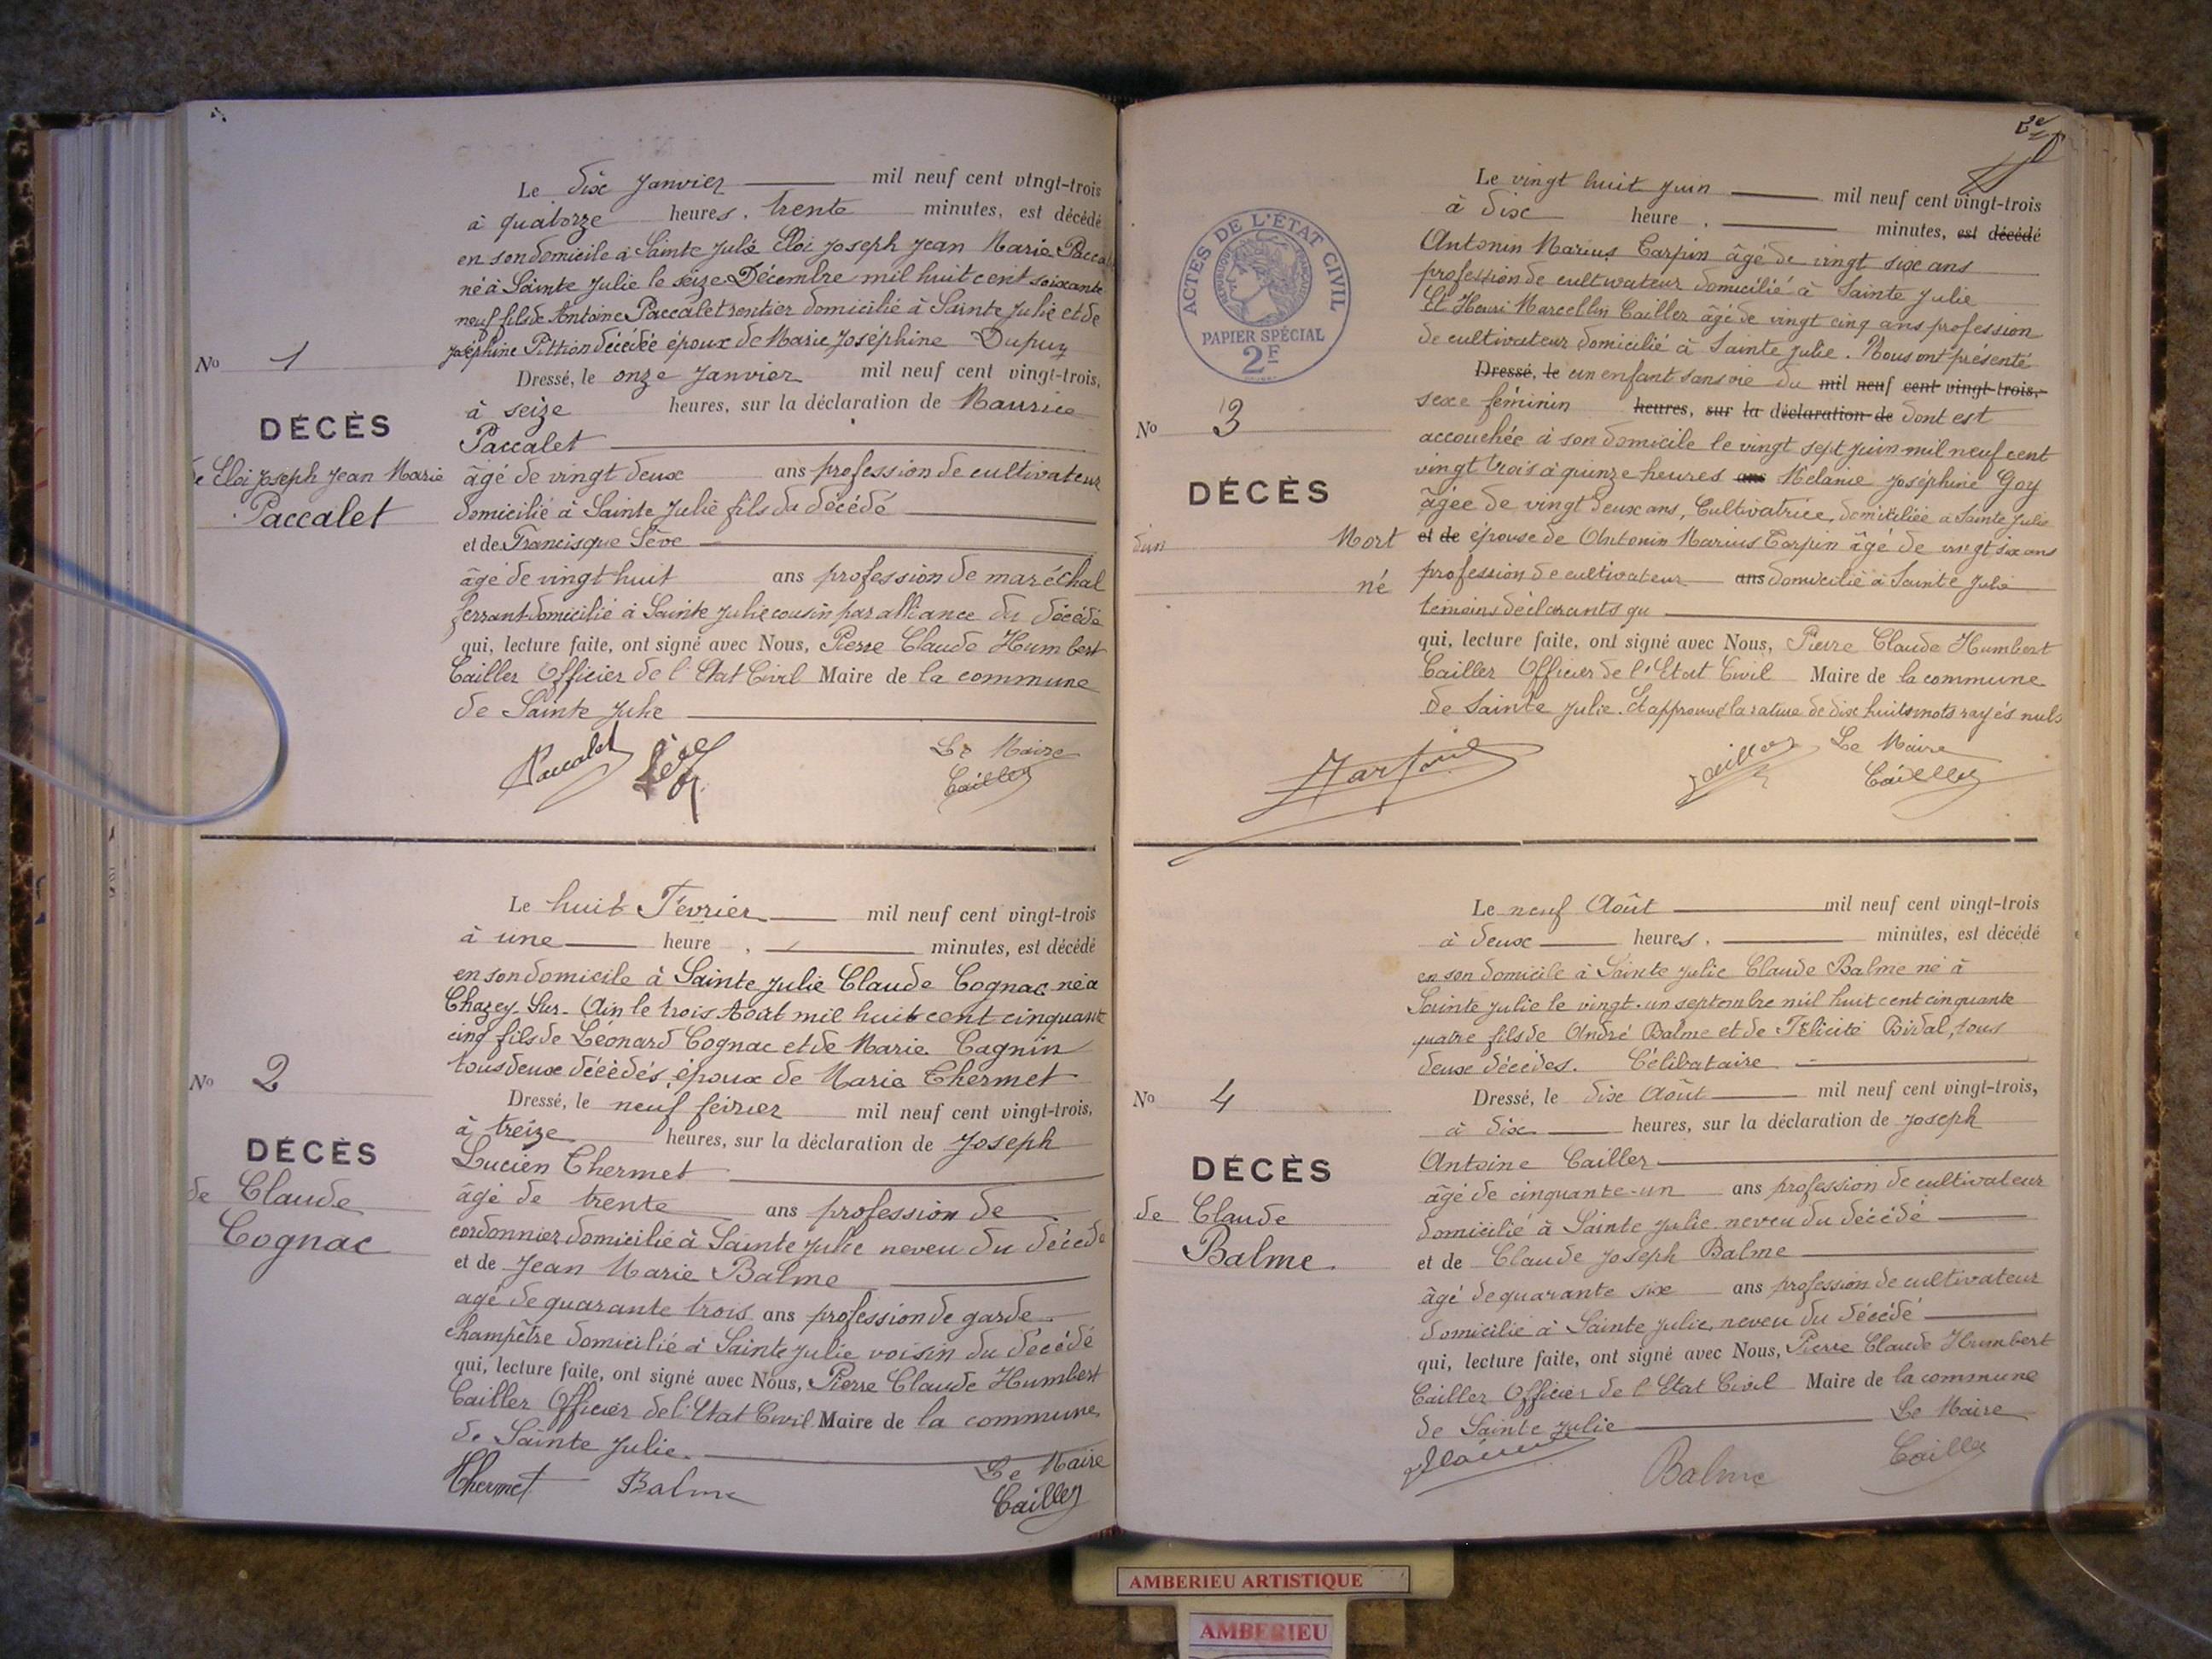 Le dix Janvier mil neuf cent vingt-trois
à quatorze heures, trente minutes, est décédé
en son domicile à Sainte Julie Eloi Joseph Jean Marie Paccalet
né à Sainte Julie le seize Décembre mil huit cent soixante
neuf fils de Antoine Paccalet rentier domicilié à Sainte Julie et de
Joséphine Pittion décédée époux de Marie Joséphine Dupuy
No 1
Dressé, le onze Janvier mil neuf cent vingt-trois,
à seize heures, sur la déclaration de Maurice
DÉCÈS
Paccalet
de Eloi Joseph Jean Marie
Paccalet
âgé de vingt deux ans profession de cultivateur
domicilié à Sainte Julie fils du décédé
et de Francisque Sève
âgé de vingt huit ans profession de maréchal
ferrant domicilié à Sainte Julie cousin par alliance du décédé
qui, lecture faite, ont signé avec Nous, Pierre Claude Humbert
Cailler Officier de l'Etat Civil Maire de la commune
de Sainte Julie
Paccalet Sève Le Maire
Cailler
Le huit Février mil neuf cent vingt-trois
à une heure, minutes, est décédé
en son domicile à Sainte Julie Claude Cognac né à
Chazey-Sur-Ain le trois Août mil huit cent cinquante
cinq fils de Léonard Cognac et de Marie Cagnin
tous deux décédés, époux de Marie Thermet
No 2
Dressé, le neuf février mil neuf cent vingt-trois,
à treize heures, sur la déclaration de Joseph
DÉCÈS
de Claude
Cognac
Lucien Thermet
âgé de trente ans profession de
cordonnier domicilié à Sainte Julie neveu du décédé
et de Jean Marie Balme
agé de quarante trois ans profession de garde
champêtre domicilié à Sainte Julie voisin du décédé
qui, lecture faite, ont signé avec Nous, Pierre Claude Humbert
Cailler Officier de l'Etat Civil Maire de la commune
de Sainte Julie.
Thermet Balme Le Maire
Cailler
Le vingt huit Juin mil neuf cent vingt-trois
à dix heure, minutes, est décédé
Antonin Marius Carpin âgé de vingt six ans
profession de cultivateur domicilié à Sainte Julie
Et Henri Marcellin Cailler âgé de vingt cinq ans profession
de cultivateur domicilié à Sainte Julie. Nous ont présenté
ACTES DE L'ÉTAT CIVIL
RÉPUBLIQUE FRANÇAISE
PAPIER SPÉCIAL
2F
Dressé, le un enfant sans vie du mil neuf cent vingt-trois,
sexe féminin heures, sur la déclaration de dont est
No 3
accouchée à son domicile le vingt sept Juin mil neuf cent
vingt trois à quinze heures ans Mélanie Joséphine Goy
DÉCÈS
âgée de vingt deux ans, Cultivatrice, domiciliée à Sainte Julie
d'un Mort
né
et de épouse de Antonin Marius Carpin âgé de vingt six ans
profession de cultivateur ans domicilié à Sainte Julie
témoins déclarants qu
qui, lecture faite, ont signé avec Nous, Pierre Claude Humbert
Cailler Officier de l'Etat Civil Maire de la commune
de Sainte Julie. Et approuvé la rature de dix huit mots rayés nuls
Cailler Le Maire
Cailler
Le neuf Août mil neuf cent vingt-trois
à deux heures, minutes, est décédé
en son domicile à Sainte Julie Claude Balme né à
Sainte Julie le vingt-un septembre mil huit cent cinquante
quatre fils de André Balme et de Félicité Bidal, tous
deux décédés. Célibataire
No 4
Dressé, le dix Août mil neuf cent vingt-trois,
à dix heures, sur la déclaration de Joseph
DÉCÈS
de Claude
Balme.
Antoine Cailler
âgé de cinquante-un ans profession de cultivateur
domicilié à Sainte Julie neveu du décédé
et de Claude Joseph Balme
âgé de quarante six ans profession de cultivateur
domicilié à Sainte Julie, neveu du décédé
qui, lecture faite, ont signé avec Nous, Pierre Claude Humbert
Cailler Officier de l'Etat Civil Maire de la commune
de Sainte Julie Le Maire
Balme Cailler
AMBERIEU ARTISTIQUE
AMBERIEU